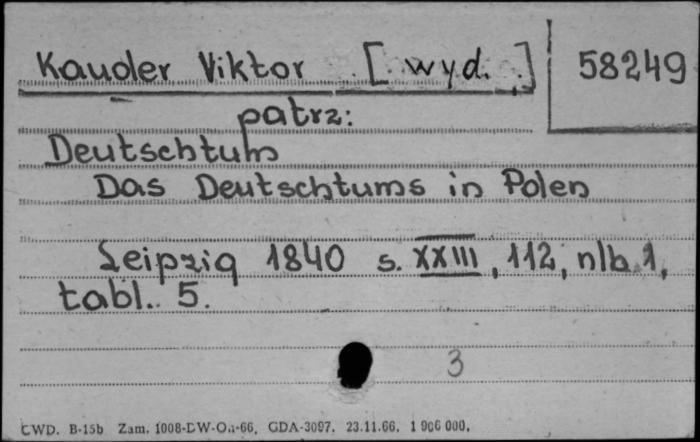 Kauder Viktor [wyd.] 58249
patrz:
Deutschtum
Das Deutschtums in Polen
Leipzig 1840 s. XXIII, 112, nlb 1,
tabl. 5.
3
CWD. B-15b Zam. 1008-DW-Oa-66, GDA-3097, 23.11.66, 1 906 000,